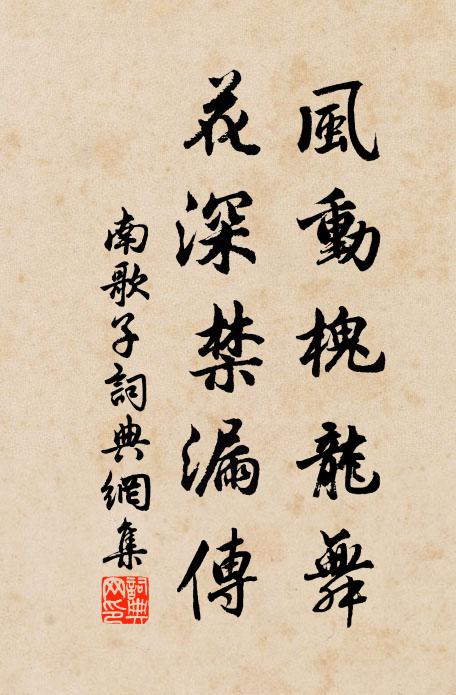 風動槐龍舞
花深禁漏傳
南歌子詞典網集
詞典
網印